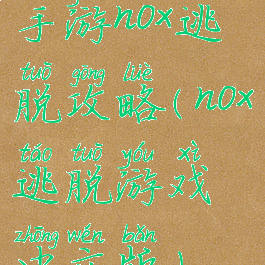 手游n0x逃
tuō gōng lüè
脱攻略(n0x
táo tuō yóu xì
逃脱游戏
zhōng wén bǎn
中文版)